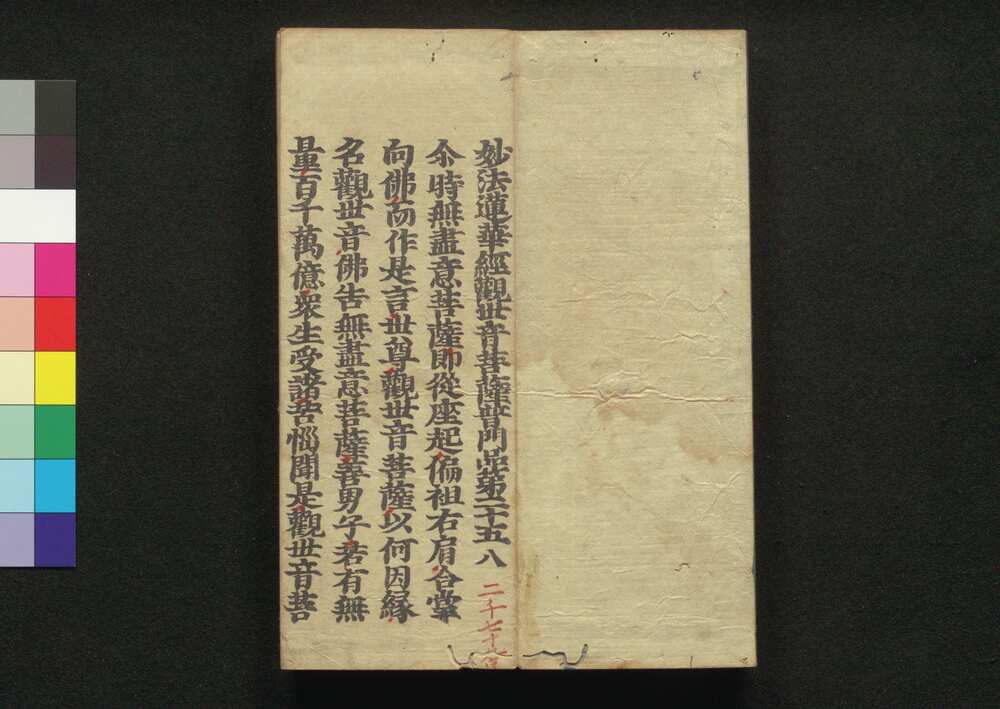 妙法蓮華經觀世音菩薩普門品第二十五 八
二千七十九
尒時無盡意菩薩即從座起偏袒右肩合掌
向佛而作是言世尊觀世音菩薩以何因緣
名觀世音佛告無盡意菩薩善男子若有無
量百千萬億衆生受諸苦惱聞是觀世音菩